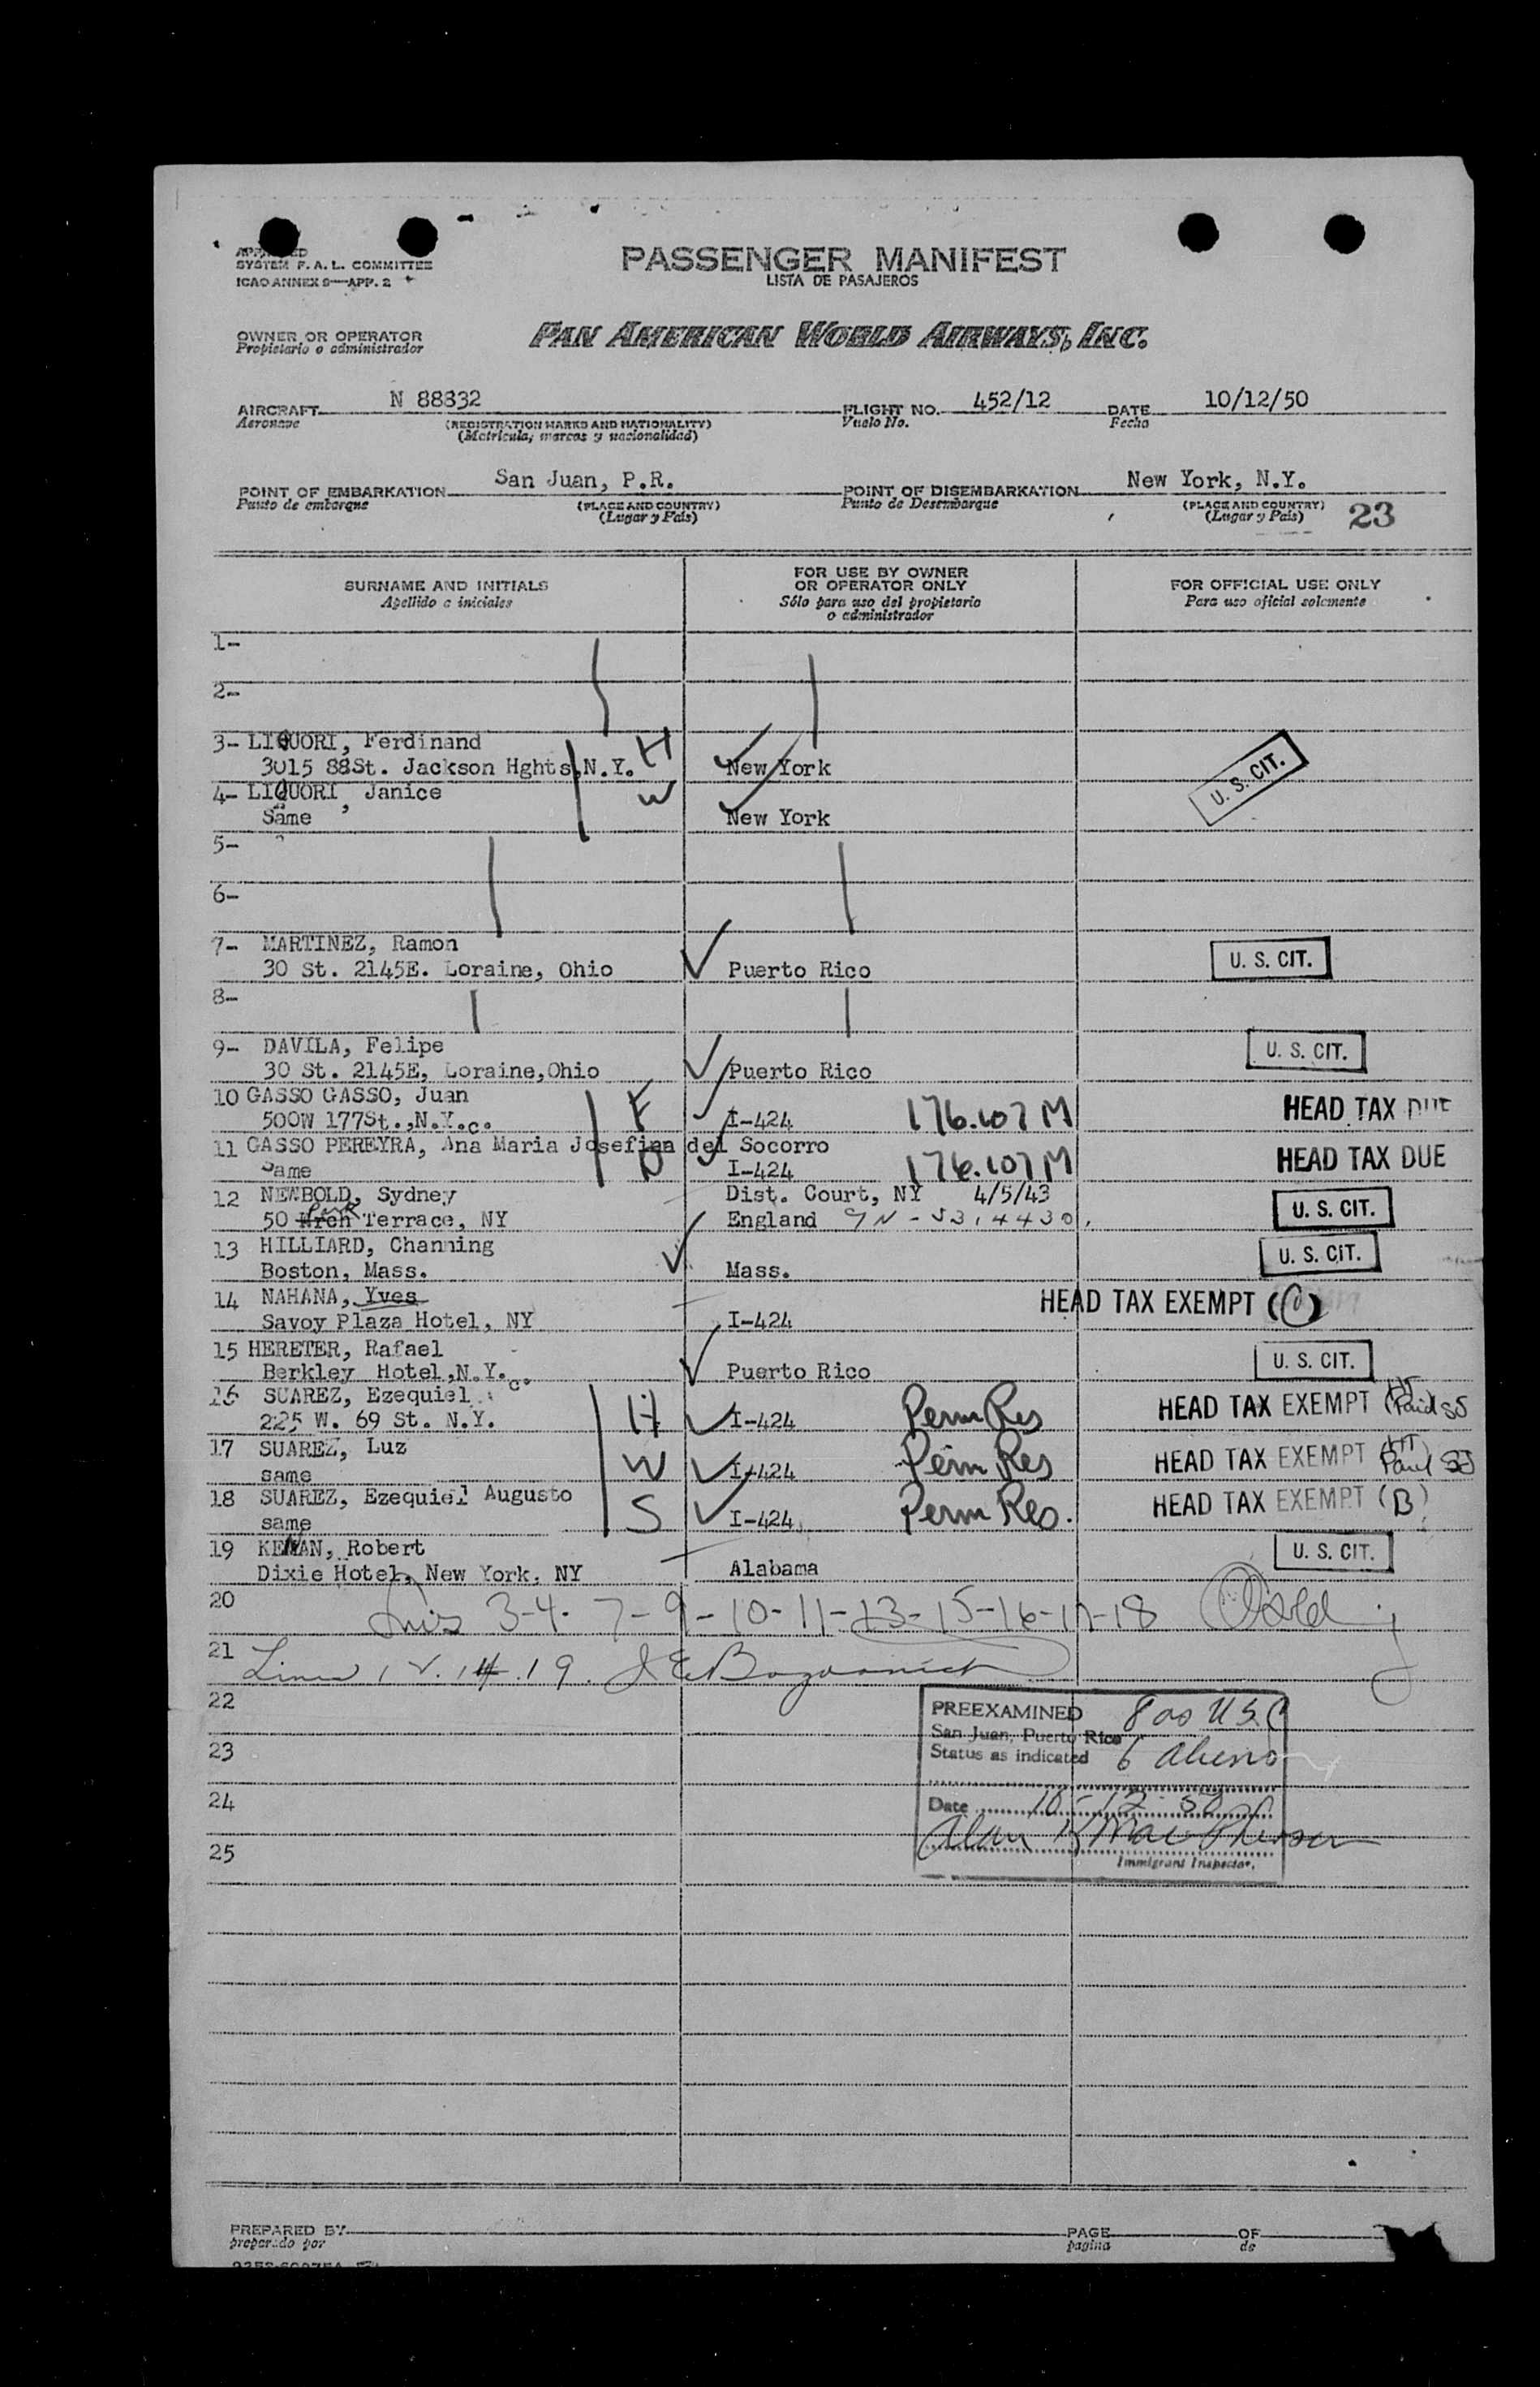 SYSTEM F. A. L. COMMITTEE
ICAO ANNEX 9—APP. 2
PASSENGER MANIFEST
LISTA DE PASAJEROS
OWNER OR OPERATOR
Propietario o administrador
PAN AMERICAN WORLD AIRWAYS, INC.
AIRCRAFT N 88832 FLIGHT NO. 452/12 DATE 10/12/50
Aeronave (REGISTRATION MARKS AND NATIONALITY) Vuelo No. Fecha
(Matrícula, marcas y nacionalidad)
POINT OF EMBARKATION San Juan, P.R. POINT OF DISEMBARKATION New York, N.Y.
Punto de embarque (PLACE AND COUNTRY) Punto de Desembarque (PLACE AND COUNTRY)
(Lugar y País) (Lugar y País) 23
SURNAME AND INITIALS FOR USE BY OWNER OR OPERATOR ONLY FOR OFFICIAL USE ONLY
Apellido e iniciales Sólo para uso del propietario o administrador Para uso oficial solamente
1-
2-
3- LIQUORI, Ferdinand H
3015 88St. Jackson Hghts, N.Y. New York U. S. CIT.
4- LIQUORI, Janice W
Same New York
5-
6-
7- MARTINEZ, Ramon
30 St. 2145E. Loraine, Ohio Puerto Rico U. S. CIT.
8-
9- DAVILA, Felipe U. S. CIT.
30 St. 2145E, Loraine,Ohio Puerto Rico
10 GASSO GASSO, Juan F
500W 177St.,N.Y.C. I-424 176.107 M HEAD TAX DUE
11 GASSO PEREYRA, Ana Maria Josefina del Socorro
Same D I-424 176.107 M HEAD TAX DUE
12 NEWBOLD, Sydney Dist. Court, NY 4/5/43
50 Arch Park Terrace, NY England U. S. CIT.
13 HILLIARD, Channing
Boston, Mass. Mass. U. S. CIT.
14 NAHANA, Yves HEAD TAX EXEMPT
Savoy Plaza Hotel, NY I-424
15 HERETER, Rafael
Berkley Hotel,N.Y.C. Puerto Rico U. S. CIT.
16 SUAREZ, Ezequiel
225 W. 69 St. N.Y. H I-424 Perm Res HEAD TAX EXEMPT (HT Paid SJ
17 SUAREZ, Luz
same W I-424 Perm Res HEAD TAX EXEMPT (HT Paid SJ
18 SUAREZ, Ezequiel Augusto
same S I-424 Perm Res. HEAD TAX EXEMPT (B)
19 KENAN, Robert U. S. CIT.
Dixie Hotel, New York, NY Alabama
20 3-4-7-9-10-11-13-15-16-17-18
21
22
PREEXAMINED
San Juan, Puerto Rico
Status as indicated 6 aliens
23
24
Date 10-12-50
25
Immigrant Inspector.
PREPARED BY PAGE OF
preparado por pagina de